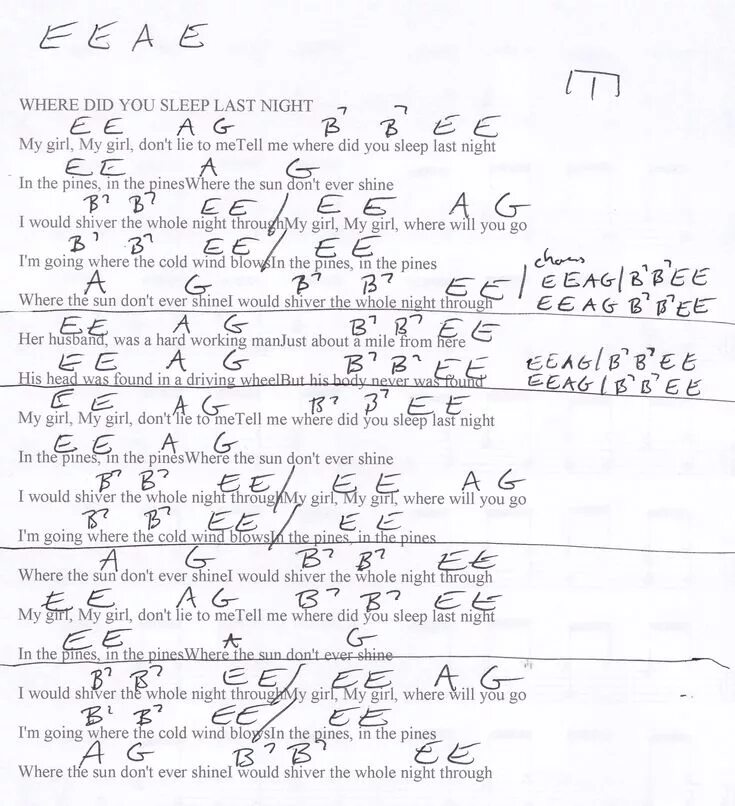 E E A E
T
WHERE DID YOU SLEEP LAST NIGHT
E E A G B7 B7 E E
My girl, My girl, don't lie to meTell me where did you sleep last night
E E A G
In the pines, in the pinesWhere the sun don't ever shine
B7 B7 E E / E E A G
I would shiver the whole night throughMy girl, My girl, where will you go
B7 B7 E E / E E
I'm going where the cold wind blowsIn the pines, in the pines
chorus
A G B7 B7 E E / E E A G / B7 B7 E E
Where the sun don't ever shineI would shiver the whole night through
E E A G B7 B7 E E
E E A G B7 B7 E E
Her husband, was a hard working manJust about a mile from here
E E A G B7 B7 E E E E A G / B7 B7 E E
His head was found in a driving wheelBut his body never was found
E E A G / B7 B7 E E
E E A G B7 B7 E E
My girl, My girl, don't lie to meTell me where did you sleep last night
E E A G
In the pines, in the pinesWhere the sun don't ever shine
B7 B7 E E / E E A G
I would shiver the whole night throughMy girl, My girl, where will you go
B7 B7 E E / E E
I'm going where the cold wind blowsIn the pines, in the pines
A G B7 B7 E E
Where the sun don't ever shineI would shiver the whole night through
E E A G B7 B7 E E
My girl, My girl, don't lie to meTell me where did you sleep last night
E E A G
In the pines, in the pinesWhere the sun don't ever shine
B7 B7 E E / E E A G
I would shiver the whole night throughMy girl, My girl, where will you go
B7 B7 E E / E E
I'm going where the cold wind blowsIn the pines, in the pines
A G B7 B7 E E
Where the sun don't ever shineI would shiver the whole night through